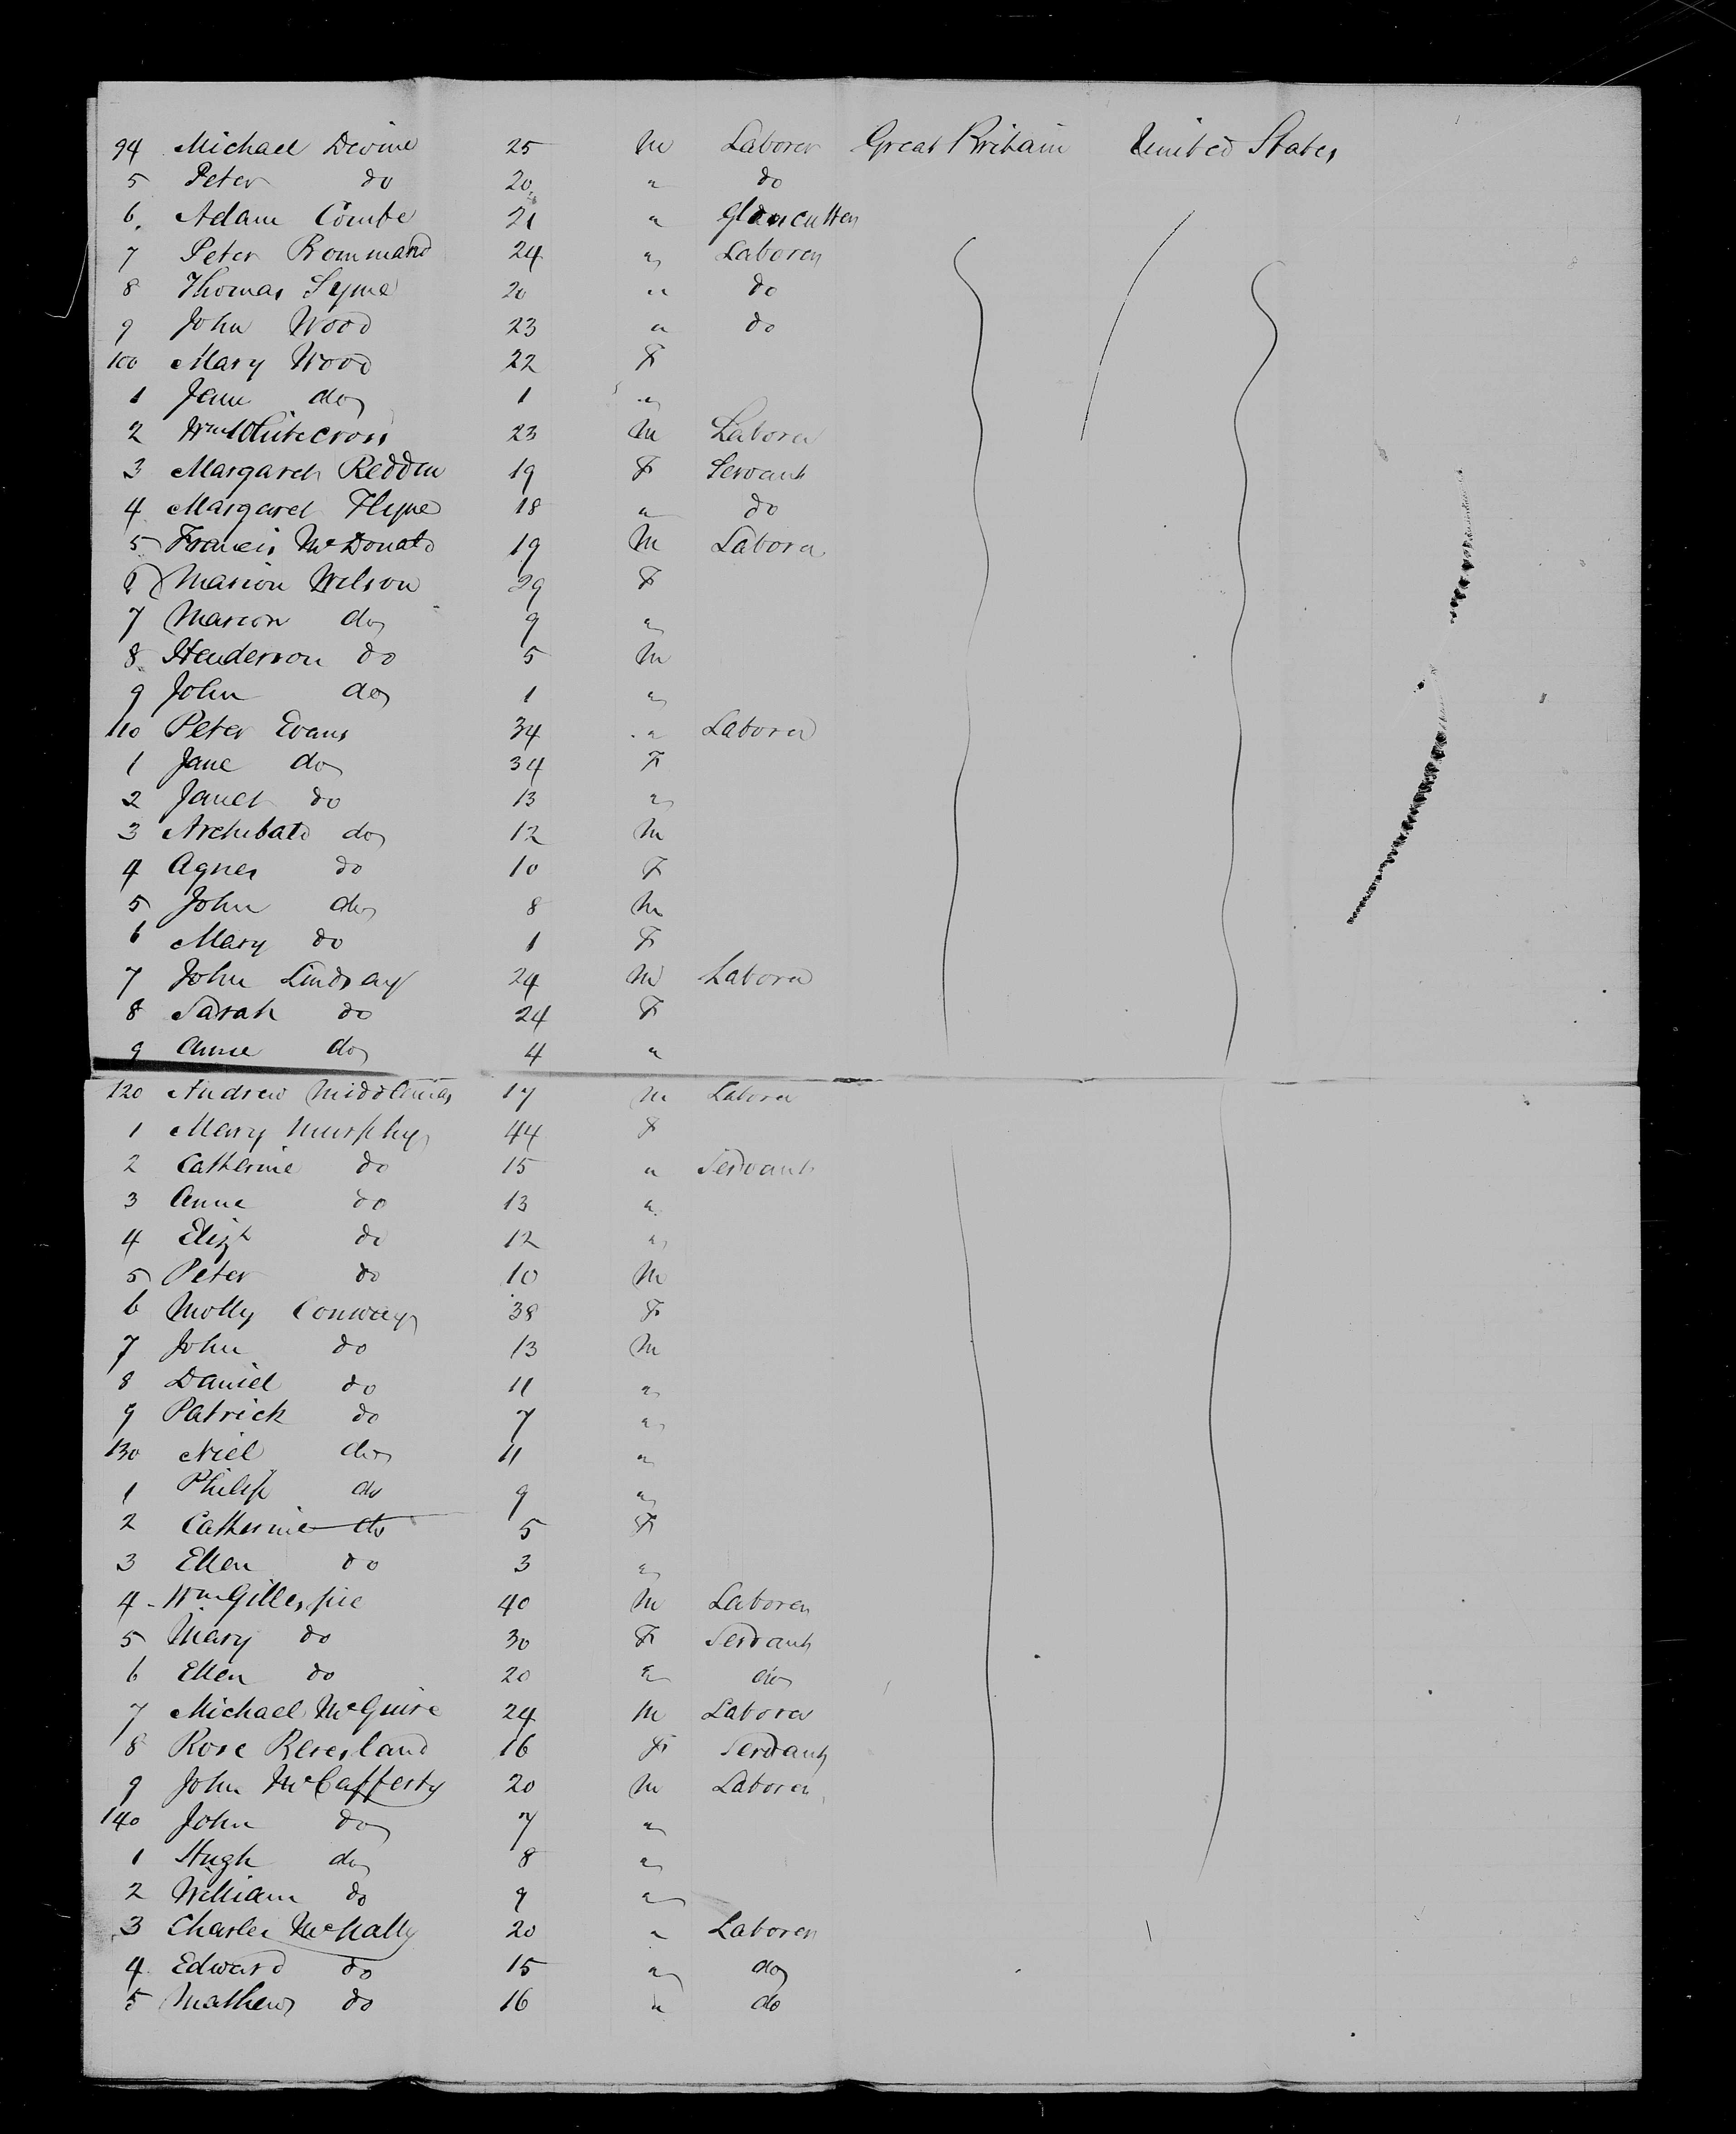 94 Michael Devine 25 M Laborer Great Britain United States
5 Peter do 20 " do
6. Adam Combe 21 " Glasscutter
7 Peter Rommand 24 " Laborer
8 Thomas Syme 20 " do
9 John Wood 23 " do
100 Mary Wood 22 F
1 Jane do 1 "
2 Wm Whitecross 23 M Laborer
3 Margaret Redden 19 F Servant
4 Margaret Flyne 18 " do
5 Francis McDonald 19 M Laborer
6 Marion Wilson 29 F
7 Marion do 9 "
8 Henderson do 5 M
9 John do 1 "
110 Peter Evans 34 " Laborer
1 Jane do 34 F
2 Janet do 13 "
3 Archibald do 12 M
4 Agnes do 10 F
5 John do 8 M
6 Mary do 1 F
7 John Lindsay 24 M Laborer
8 Sarah do 24 F
9 Anne do 4 "
120 Andrew Middlemas 17 M Laborer
1 Mary Murphy 44 F
2 Catherine do 15 " Servant
3 Anne do 13 "
4 Elizh do 12 "
5 Peter do 10 M
6 Molly Conway 38 F
7 John do 13 M
8 Daniel do 11 "
9 Patrick do 7 "
130 Niel do 11 "
1 Philip do 9 "
2 Catherine do 5 F
3 Ellen do 3 "
4 Wm Gillespie 40 M Laborer
5 Mary do 30 F Servant
6 Ellen do 20 " do
7 Michael McGuire 24 M Laborer
8 Rose Beresland 16 F Servant
9 John McCafferty 20 M Laborer
140 John do 7 "
1 Hugh do 8 "
2 William do 9 "
3 Charles McNally 20 " Laborer
4 Edward do 15 " do
5 Mathew do 16 " do